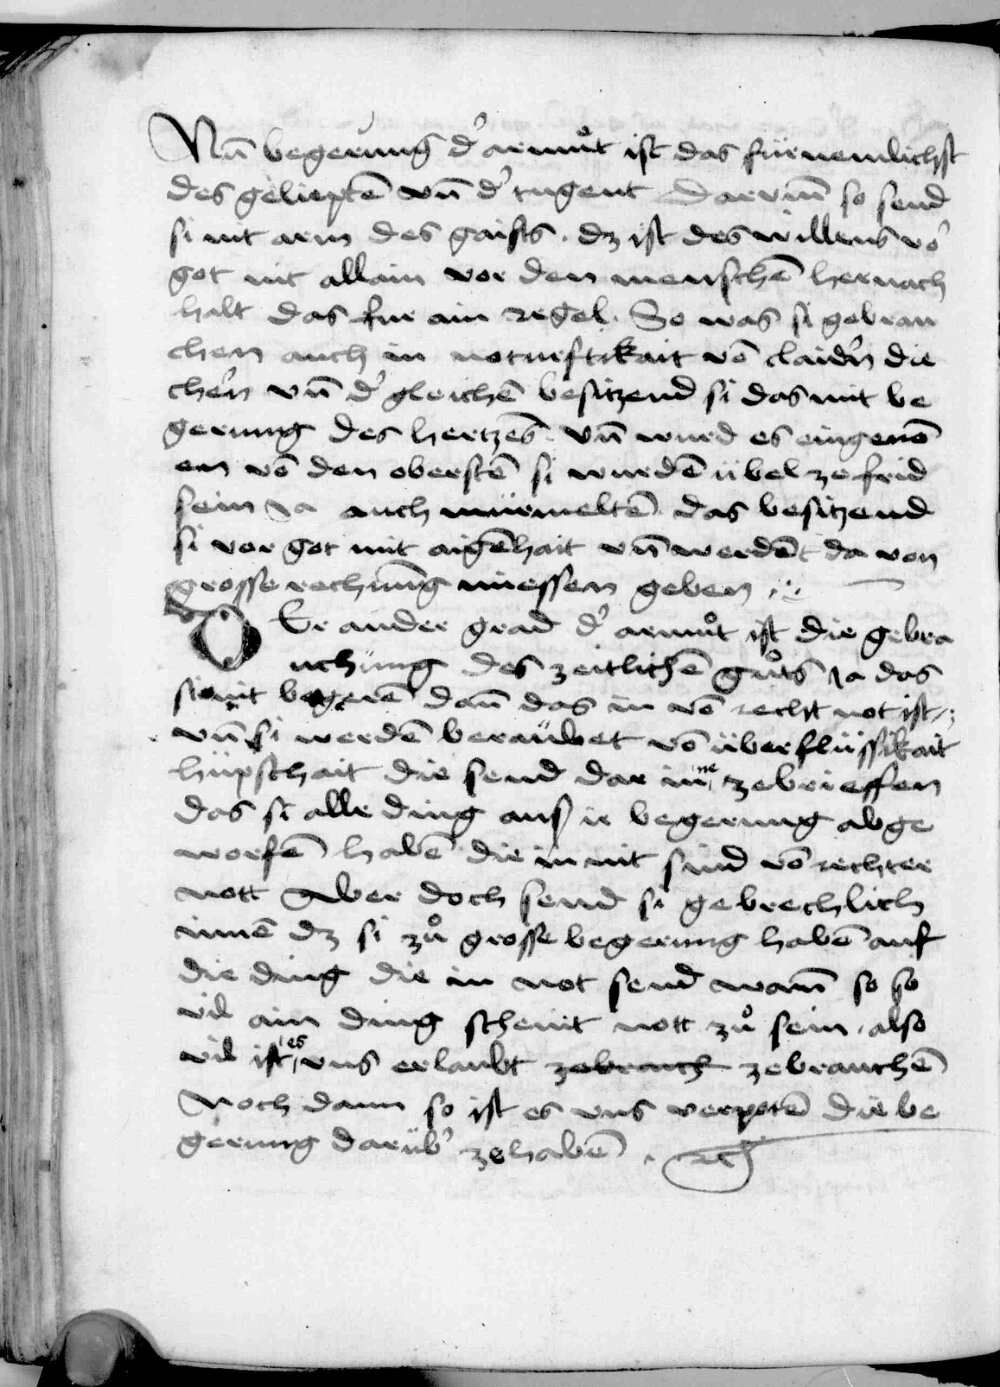 Nun̄ begerung d' armůt ist das fürnemlichst
des gelieptē vn̄ d' tugent Darvm̄ so send
si nit arm des gaists . dz ist des willens vō
got nit allain vor den menschē hernach
halt das fur ain regel . So was si gebrau
chen auch in noturftikait vō claidern die
chern vn̄ d' gleichē besitzend si das mit be
gerung des hertzēs . vn̄ wurd es eingenō
en vō den oberstē si wurdē übel ze frid
sein Ja auch mürmeltē das besitzend
si vor got mit aigēhait vn̄ werdēt da von
grosse rechnūg miessen geben .:.
DEr ander grad d' armůt ist die gebra
uchung des zeitlichē gůts Ja das
si nit begerē dan̄ das in vō recht not ist .:
vn̄ si werdē beraübet vō überflüssikait
hüpschait die send dar in̄ne zebrieffen
das si alle ding auß ir begerung abge
worfē habē die in nit sind vō rechter
nott Aber doch send si gebrechlich
innē dz si zů grosse begerung habē auf
die ding die in not send wan̄ so so
vil ain ding scheint nott zů sein . also
vil ist es vns erlaubt zebrauch zebrauchē
Noch dann so ist es vns verpotē die be
gerung darüb' zehabē . etc